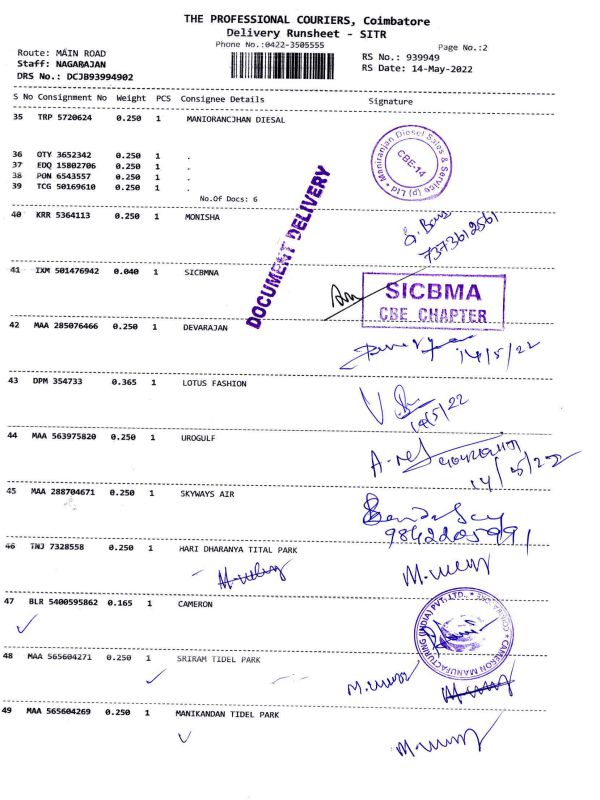 THE PROFESSIONAL COURIERS, Coimbatore
Delivery Runsheet - SITR
Phone No.:0422-3505555
Page No.:2
Route: MAIN ROAD
RS No.: 939949
Staff: NAGARAJAN
RS Date: 14-May-2022
DRS No.: DCJB93994902
S No Consignment No Weight PCS Consignee Details Signature
35 TRP 5720624 0.250 1 MANIORANCJHAN DIESAL
Maniranjan Diesel Sales & Service (p) Ltd
CBE-14
36 OTY 3652342 0.250 1 .
37 EDQ 15802706 0.250 1 .
38 PON 6543557 0.250 1 .
39 TCG 50169610 0.250 1 .
No.Of Docs: 6
DOCUMENT DELIVERY
40 KRR 5364113 0.250 1 MONISHA
7373612561
41 IXM 501476942 0.040 1 SICBMNA
SICBMA
CBE CHAPTER
42 MAA 285076466 0.250 1 DEVARAJAN
14/5/22
43 DPM 354733 0.365 1 LOTUS FASHION
14/5/22
44 MAA 563975820 0.250 1 UROGULF
14/5/22
45 MAA 288704671 0.250 1 SKYWAYS AIR
9842205991
46 TNJ 7328558 0.250 1 HARI DHARANYA TITAL PARK
47 BLR 5400595862 0.165 1 CAMERON
CAMERON MANUFACTURING (INDIA) PVT. LTD.
48 MAA 565604271 0.250 1 SRIRAM TIDEL PARK
49 MAA 565604269 0.250 1 MANIKANDAN TIDEL PARK